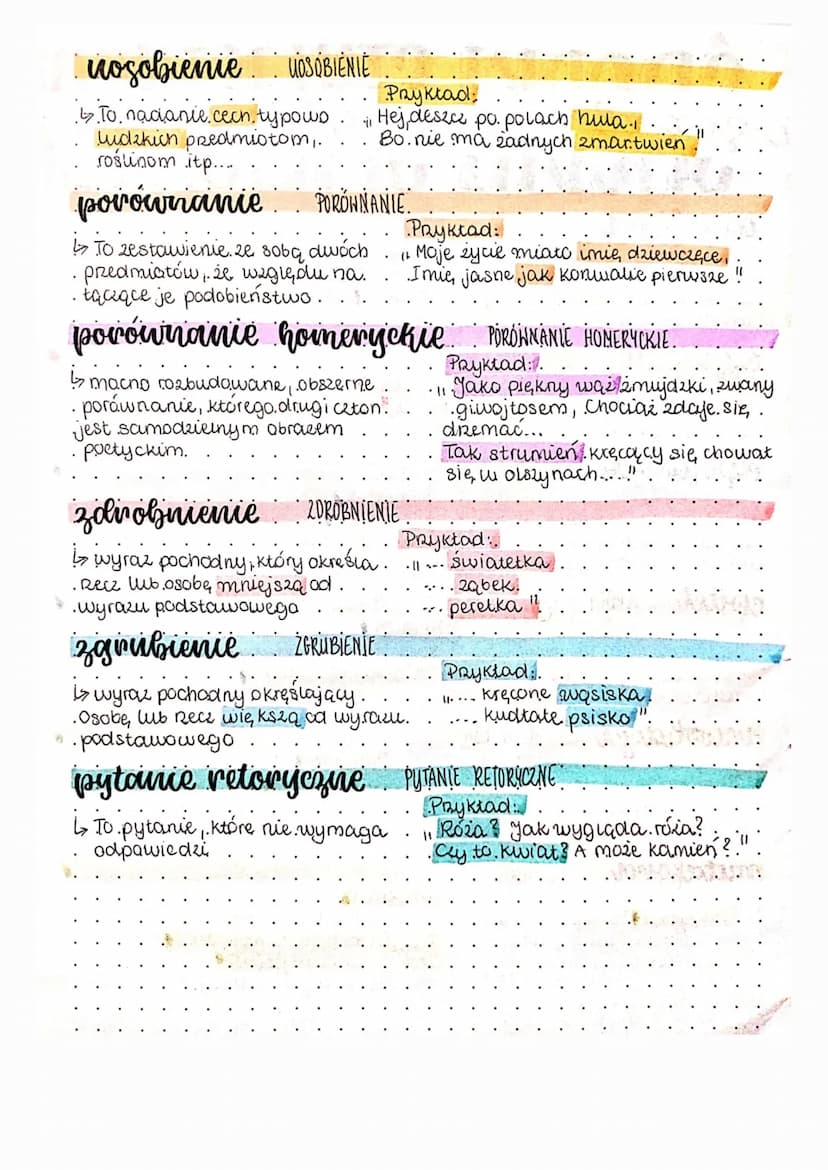 uosobienie UOSOBIENIE
Przykład:
↳ To nadanie cech typowo
ludzkich przedmiotom,
roślinom itp...
„Hej, deszcz po polach hula,
Bo nie ma żadnych zmartwień"
porównanie PORÓWNANIE
Przykład:
↳ To zestawienie ze sobą dwóch
przedmiotów, ze względu na
łączące je podobieństwo
„Moje życie miało imię dziewczęce,
Imię jasne jak konwalie pierwsze"
porównanie homeryckie PORÓWNANIE HOMERYCKIE
Przykład:
↳ mocno rozbudowane, obszerne
porównanie, którego drugi człon
jest samodzielnym obrazem
poetyckim.
„Jako piękny wąż żmujdzki, zwany
giwojtosem, Chociaż zdaje się
drzemać...
Tak strumień kręcący się chował
się w olszynach..."
zdrobnienie ZDROBNIENIE
Przykład:
↳ wyraz pochodny, który określa
rzecz lub osobę mniejszą od
wyrazu podstawowego
„... światełka
... ząbek
... perełka"
zgrubienie ZGRUBIENIE
Przykład:
↳ wyraz pochodny określający
osobę lub rzecz większą od wyrazu
podstawowego
„... kręcone wąsiska
... kudłate psisko"
pytanie retoryczne PYTANIE RETORYCZNE
Przykład:
↳ To pytanie, które nie wymaga
odpowiedzi
„Róża? Jak wygląda róża?
Czy to kwiat? A może kamień?"